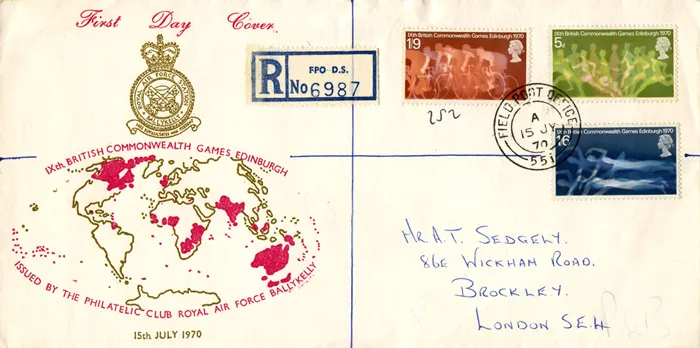 First Day Cover
ROYAL AIR FORCE
BALLYKELLY
R
FPO D.S.
No 6987
IXth British Commonwealth Games Edinburgh 1970
1/9
IXth British Commonwealth Games Edinburgh 1970
5d
IXth British Commonwealth Games Edinburgh 1970
1/6
252
FIELD POST OFFICE
A
15 JY
70
551
IXth BRITISH COMMONWEALTH GAMES EDINBURGH
ISSUED BY THE PHILATELIC CLUB ROYAL AIR FORCE BALLYKELLY
15th JULY 1970
Mr. A.T. SEDGELY.
86E WICKHAM ROAD.
BROCKLEY.
LONDON SE4